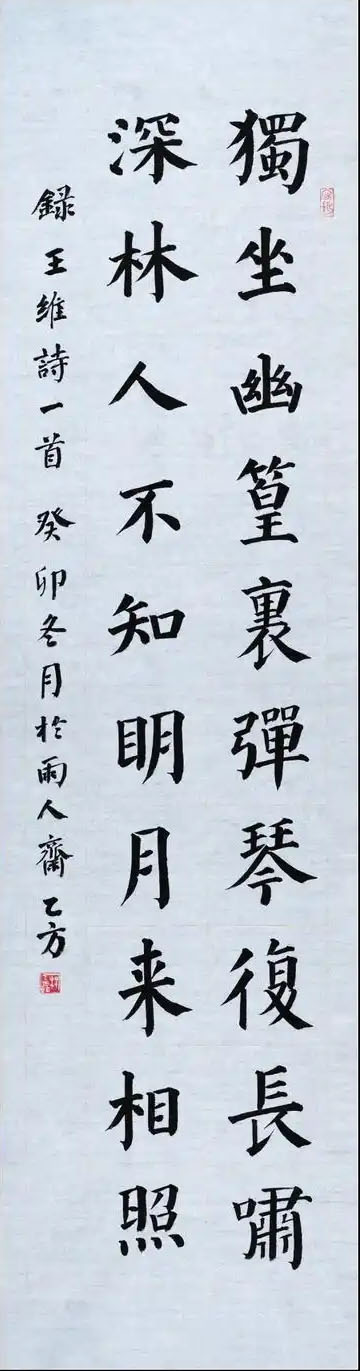 獨坐幽篁裏彈琴復長嘯
深林人不知明月来相照
録王維詩一首 癸卯冬月於雨人齋乙方